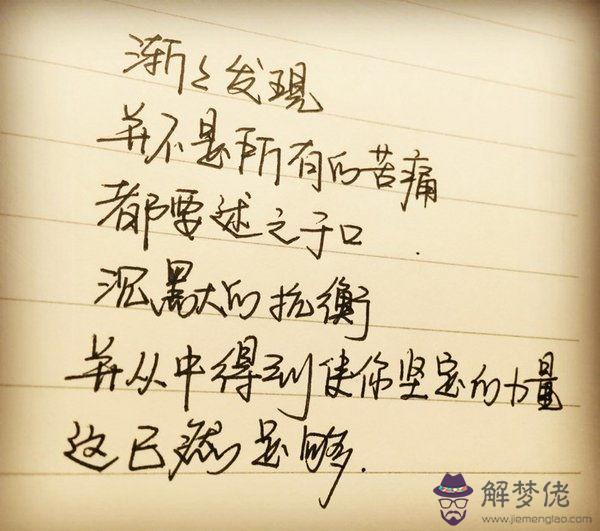 渐々发现
并不是所有的苦痛
都要述之于口.
沉默的抗衡
并从中得到使你坚定的力量
这已然足够.
解梦佬
www.jiemenglao.com